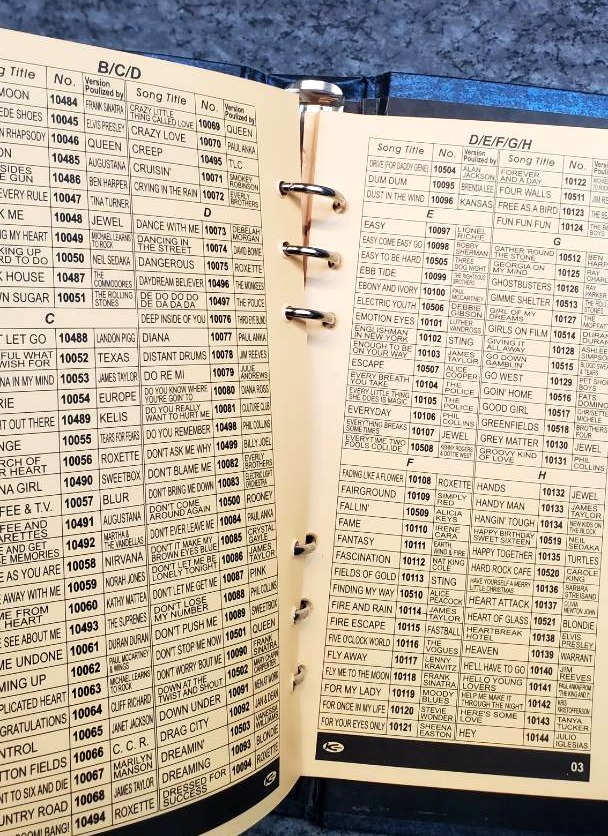 B/C/D
g Title No. Version Poulized by
MOON 10484 FRANK SINATRA
EDE SHOES 10045 ELVIS PRESLEY
N RHAPSODY 10046 QUEEN
ON 10485 AUGUSTANA
SIDES GUN 10486 BEN HARPER
EVERY RULE 10047 TINA TURNER
K ME 10048 JEWEL
NG MY HEART 10049 MICHAEL LEARNS TO ROCK
KING UP RD TO DO 10050 NEIL SEDAKA
K HOUSE 10487 THE COMMODORES
WN SUGAR 10051 THE ROLLING STONES
C
T LET GO 10488 LANDON PIGG
FUL WHAT WISH FOR 10052 TEXAS
NA IN MY MIND 10053 JAMES TAYLOR
RIE 10054 EUROPE
HT OUT THERE 10489 KELIS
NGE 10055 TEARS FOR FEARS
RCH OF R HEART 10056 ROXETTE
NA GIRL 10490 SWEETBOX
FEE & T.V. 10057 BLUR
FEE AND ARETTES 10491 AUGUSTANA
E AND GET SE MEMORIES 10492 MARTHA & THE VANDELLAS
E AS YOU ARE 10058 NIRVANA
AWAY WITH ME 10059 NORAH JONES
ME FROM HEART 10060 KATHY MATTEA
E SEE ABOUT ME 10493 THE SUPREMES
ME UNDONE 10061 DURAN DURAN
MING UP 10062 PAUL MCCARTNEY & WINGS
PLICATED HEART 10063 MICHAEL LEARNS TO ROCK
GRATULATIONS 10064 CLIFF RICHARD
NTROL 10065 JANET JACKSON
TTON FIELDS 10066 C. C. R.
NT TO SIX AND DIE 10067 MARILYN MANSON
UNTRY ROAD 10068 JAMES TAYLOR
OOM! BANG! 10494 ROXETTE
Song Title No. Version Poulized by
CRAZY LITTLE THING CALLED LOVE 10069 QUEEN
CRAZY LOVE 10070 PAUL ANKA
CREEP 10495 TLC
CRUISIN' 10071 SMOKEY ROBINSON
CRYING IN THE RAIN 10072 EVERLY BROTHERS
D
DANCE WITH ME 10073 DEBELAH MORGAN
DANCING IN THE STREET 10074 DAVID BOWIE
DANGEROUS 10075 ROXETTE
DAYDREAM BELIEVER 10496 THE MONKEES
DE DO DO DO DE DA DA DA 10497 THE POLICE
DEEP INSIDE OF YOU 10076 THIRD EYE BLIND
DIANA 10077 PAUL ANKA
DISTANT DRUMS 10078 JIM REEVES
DO RE MI 10079 JULIE ANDREWS
DO YOU KNOW WHERE YOU'RE GOIN TO 10080 DIANA ROSS
DO YOU REALLY WANT TO HURT ME 10081 CULTURE CLUB
DO YOU REMEMBER 10498 PHIL COLLINS
DON'T ASK ME WHY 10499 BILLY JOEL
DON'T BLAME ME 10082 EVERLY BROTHERS
DON'T BRING ME DOWN 10083 ELECTRIC LIGHT ORCHESTRA
DON'T COME AROUND AGAIN 10500 ROONEY
DON'T EVER LEAVE ME 10084 PAUL ANKA
DON'T IT MAKE MY BROWN EYES BLUE 10085 CRYSTAL GAYLE
DON'T LET ME BE LONELY TONIGHT 10086 JAMES TAYLOR
DON'T LET ME GET ME 10087 PINK
DON'T LOSE MY NUMBER 10088 PHIL COLLINS
DON'T PUSH ME 10089 SWEETBOX
DON'T STOP ME NOW 10501 QUEEN
DON'T WORRY 'BOUT ME 10090 FRANK SINATRA
DOWN AT THE TWIST AND SHOUT 10502 MARY CHAPIN CARPENTER
DOWN UNDER 10091 MEN AT WORK
DRAG CITY 10092 JAN & DEAN
DREAMIN' 10503 VANESSA WILLIAMS
DREAMING 10093 BLONDIE
DRESSED FOR SUCCESS 10094 ROXETTE
D/E/F/G/H
Song Title No. Version Poulized by
DRIVE (FOR DADDY GENE) 10504 ALAN JACKSON
DUM DUM 10095 BRENDA LEE
DUST IN THE WIND 10096 KANSAS
E
EASY 10097 LIONEL RICHIE
EASY COME EASY GO 10098 BOBBY SHERMAN
EASY TO BE HARD 10505 THREE DOG NIGHT
EBB TIDE 10099 THE RIGHTEOUS BROTHERS
EBONY AND IVORY 10100 PAUL MCCARTNEY
ELECTRIC YOUTH 10506 DEBBIE GIBSON
EMOTION EYES 10101 LUTHER VANDROSS
ENGLISHMAN IN NEW YORK 10102 STING
ENOUGH TO BE ON YOUR WAY 10103 JAMES TAYLOR
ESCAPE 10507 ALICE COOPER
EVERY BREATH YOU TAKE 10104 THE POLICE
EVERY LITTLE THING SHE DOES IS MAGIC 10105 THE POLICE
EVERYDAY 10106 PHIL COLLINS
EVERYTHING BREAKS SOMETIMES 10107 JEWEL
EVERYTIME TWO FOOLS COLLIDE 10508 KENNY ROGERS & DOTTIE WEST
F
FADING LIKE A FLOWER 10108 ROXETTE
FAIRGROUND 10109 SIMPLY RED
FALLIN' 10509 ALICIA KEYS
FAME 10110 IRENE CARA
FANTASY 10111 EARTH WIND & FIRE
FASCINATION 10112 NAT KING COLE
FIELDS OF GOLD 10113 STING
FINDING MY WAY 10510 ALICE PEACOCK
FIRE AND RAIN 10114 JAMES TAYLOR
FIRE ESCAPE 10115 FASTBALL
FIVE O'CLOCK WORLD 10116 THE VOGUES
FLY AWAY 10117 LENNY KRAVITZ
FLY ME TO THE MOON 10118 FRANK SINATRA
FOR MY LADY 10119 MOODY BLUES
FOR ONCE IN MY LIFE 10120 STEVIE WONDER
FOR YOUR EYES ONLY 10121 SHEENA EASTON
Song Title No. Version Poulized
FOREVER AND A DAY 10122
FOUR WALLS 10511 JIM
FREE AS A BIRD 10123 THE
FUN FUN FUN 10124 THE BOYS
G
GATHER 'ROUND THE STONE 10512 BEN HARP
GEORGIA ON MY MIND 10125 RAY CHAR
GHOSTBUSTERS 10126 RAY PARKER
GIMME SHELTER 10513 THE ROL
GIRL OF MY DREAMS 10127 THE MOFFAT
GIRLS ON FILM 10514 DURAN
GIVING IT ALL AWAY 10128 ASHLEE SIMPS
GO DOWN GAMBLIN' 10515 BLOOD SWEA & TEARS
GO WEST 10129 PET SHO BOYS
GOIN' HOME 10516 FATS DOMINO
GOOD GIRL 10517 CHRISETTE MICHELE
GREENFIELDS 10518 BROTHERS FOUR
GREY MATTER 10130 JEWEL
GROOVY KIND OF LOVE 10131 PHIL COLLINS
H
HANDS 10132 JEWEL
HANDY MAN 10133 JAMES TAYLOR
HANGIN' TOUGH 10134 NEW KIDS ON THE BLOCK
HAPPY BIRTHDAY SWEET SIXTEEN 10519 NEIL SEDAKA
HAPPY TOGETHER 10135 TURTLES
HARD ROCK CAFE 10520 CAROLE KING
HAVE YOURSELF A MERRY LITTLE CHRISTMAS 10136 BARBRA STREISAND
HEART ATTACK 10137 OLIVIA NEWTON JOHN
HEART OF GLASS 10521 BLONDIE
HEARTBREAK HOTEL 10138 ELVIS PRESLEY
HEAVEN 10139 WARRANT
HE'LL HAVE TO GO 10140 JIM REEVES
HELLO YOUNG LOVERS 10141 PAUL ANKA
HELP ME MAKE IT THROUGH THE NIGHT 10142 KRIS KRISTOFFERSON
HERE'S LOVE SOME 10143 TANYA TUCKER
HEY 10144 JULIO IGLESIAS
03